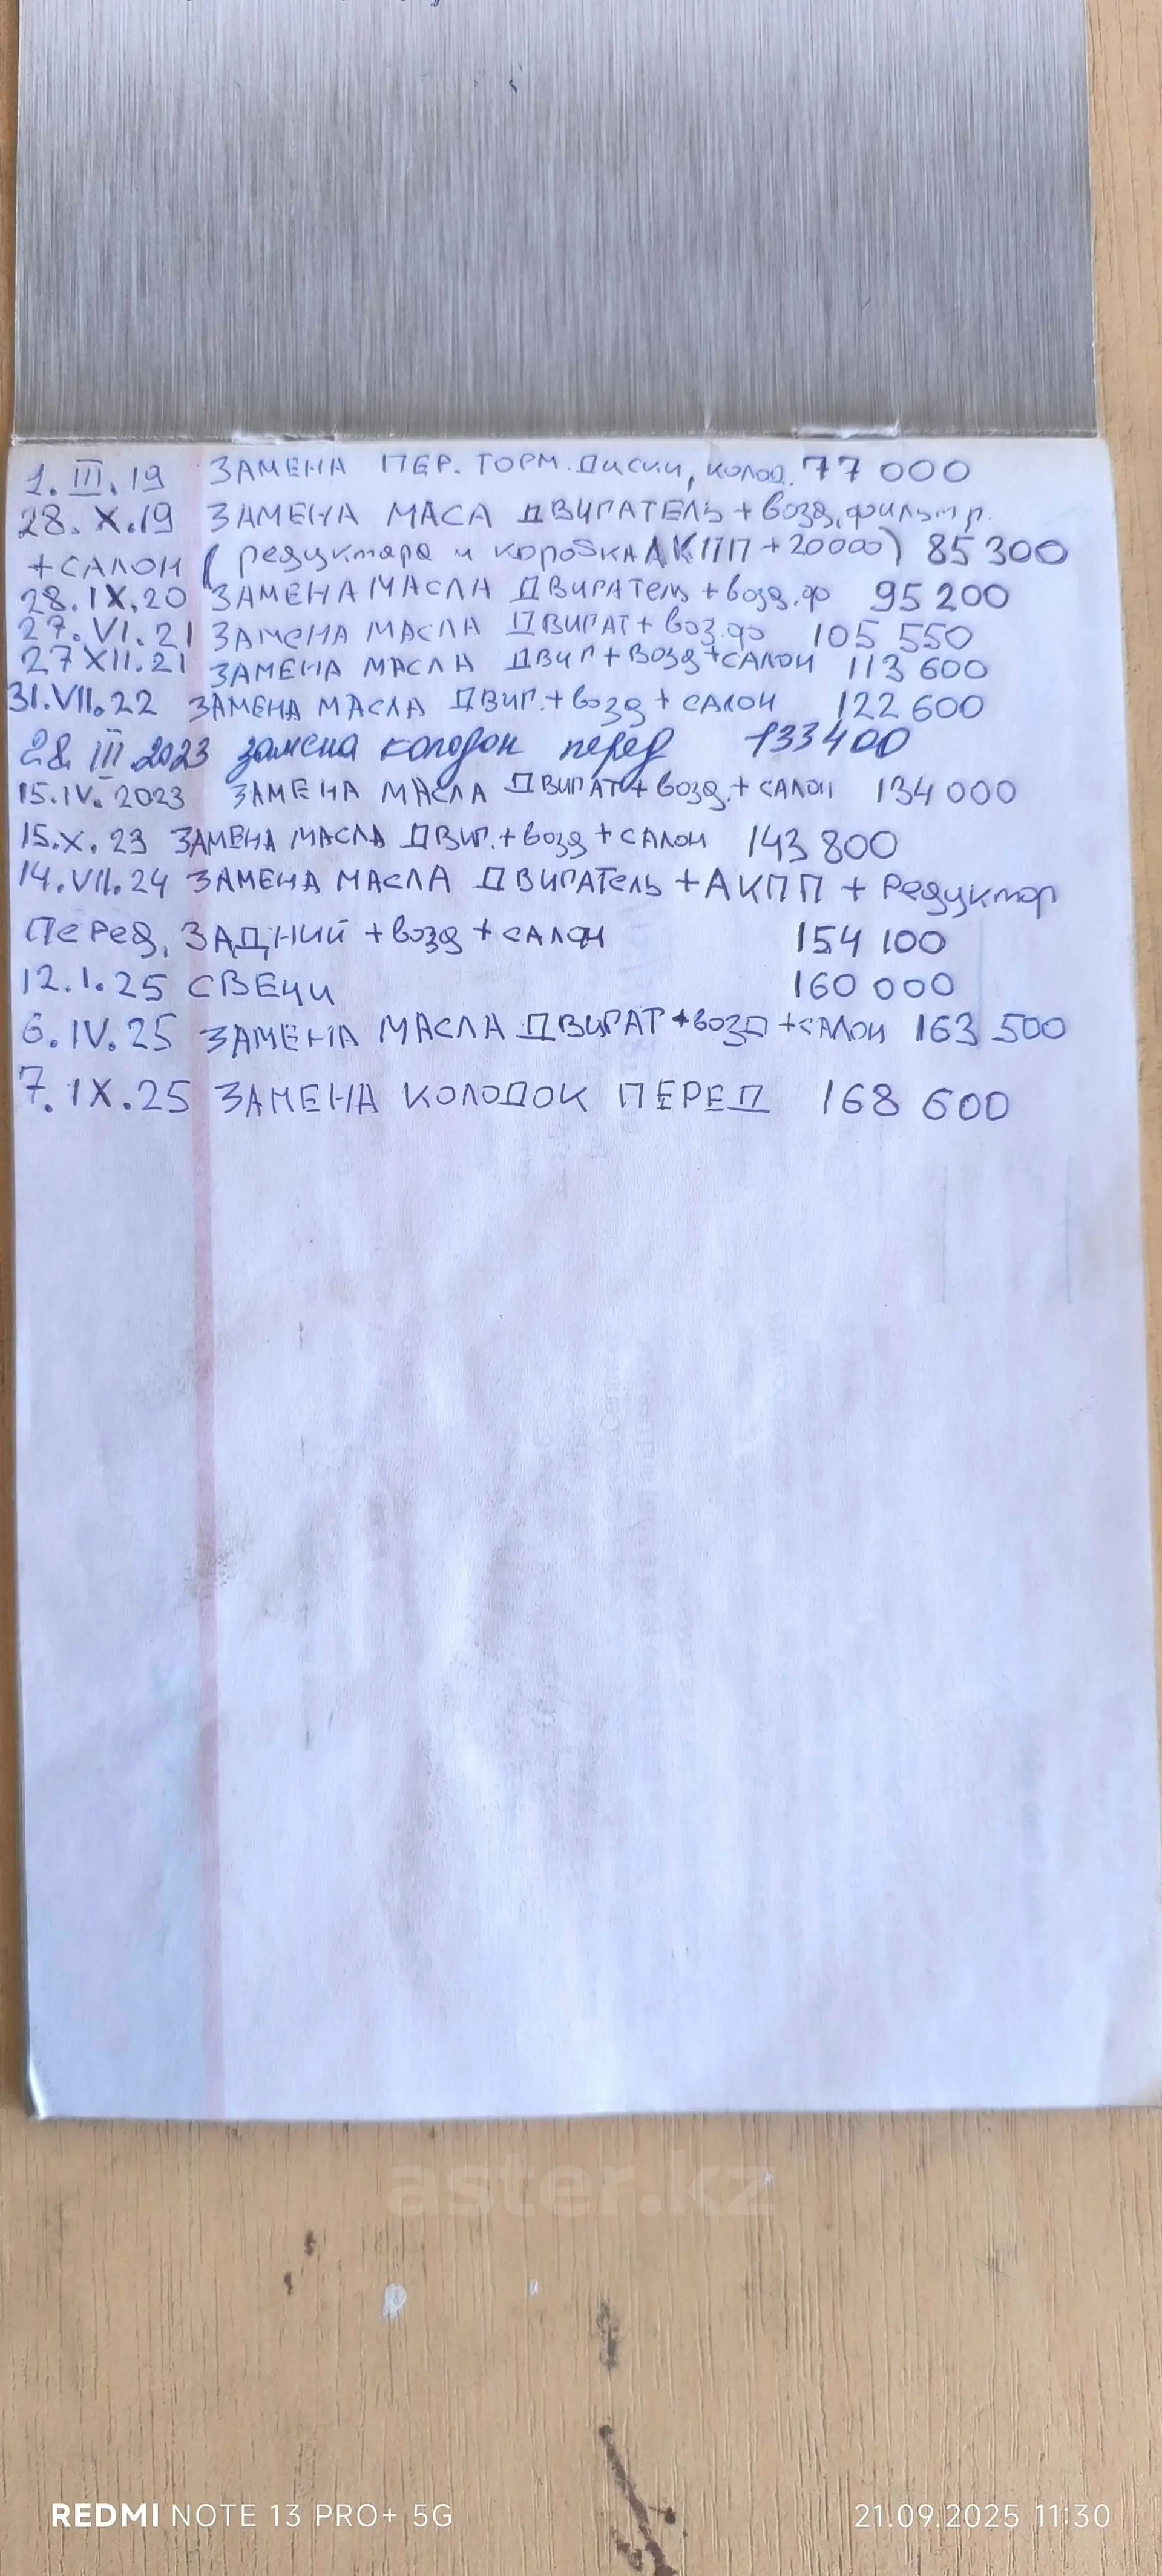 1.III.19 ЗАМЕНА ПЕР. ТОРМ. Диски, колод. 77 000
28.X.19 ЗАМЕНА МАСА ДВИГАТЕЛЬ + возд. фильтр.
+САЛОН (редуктора и коробка АКПП + 20000) 85 300
28.IX.20 ЗАМЕНА МАСЛА ДВИГАТель + возд. ф 95 200
27.VI.21 ЗАМЕНА МАСЛА ДВИГАТ + воз. ф 105 550
27 XII.21 ЗАМЕНА МАСЛА ДВИГ + ВОЗД + САЛОН 113 600
31.VII.22 ЗАМЕНА МАСЛА ДВИГ. + возд + САЛОН 122 600
28. III 2023 замена колодок перед 133400
15.IV. 2023 ЗАМЕНА МАСЛА ДВИГАТ + возд. + САЛОН 134 000
15.X.23 ЗАМЕНА МАСЛА ДВИГ. + возд + САЛОН 143 800
14.VII.24 ЗАМЕНА МАСЛА ДВИГАТель + АКПП + Редуктор
Перед, ЗАДНИЙ + возд + САЛОН 154 100
12.1.25 СВЕЧИ 160 000
6.IV.25 ЗАМЕНА МАСЛА ДВИГАТ + возд + САЛОН 163 500
7.IX.25 ЗАМЕНА КОЛОДОК ПЕРЕД 168 600
aster.kz
REDMI NOTE 13 PRO+ 5G 21.09.2025 11:30